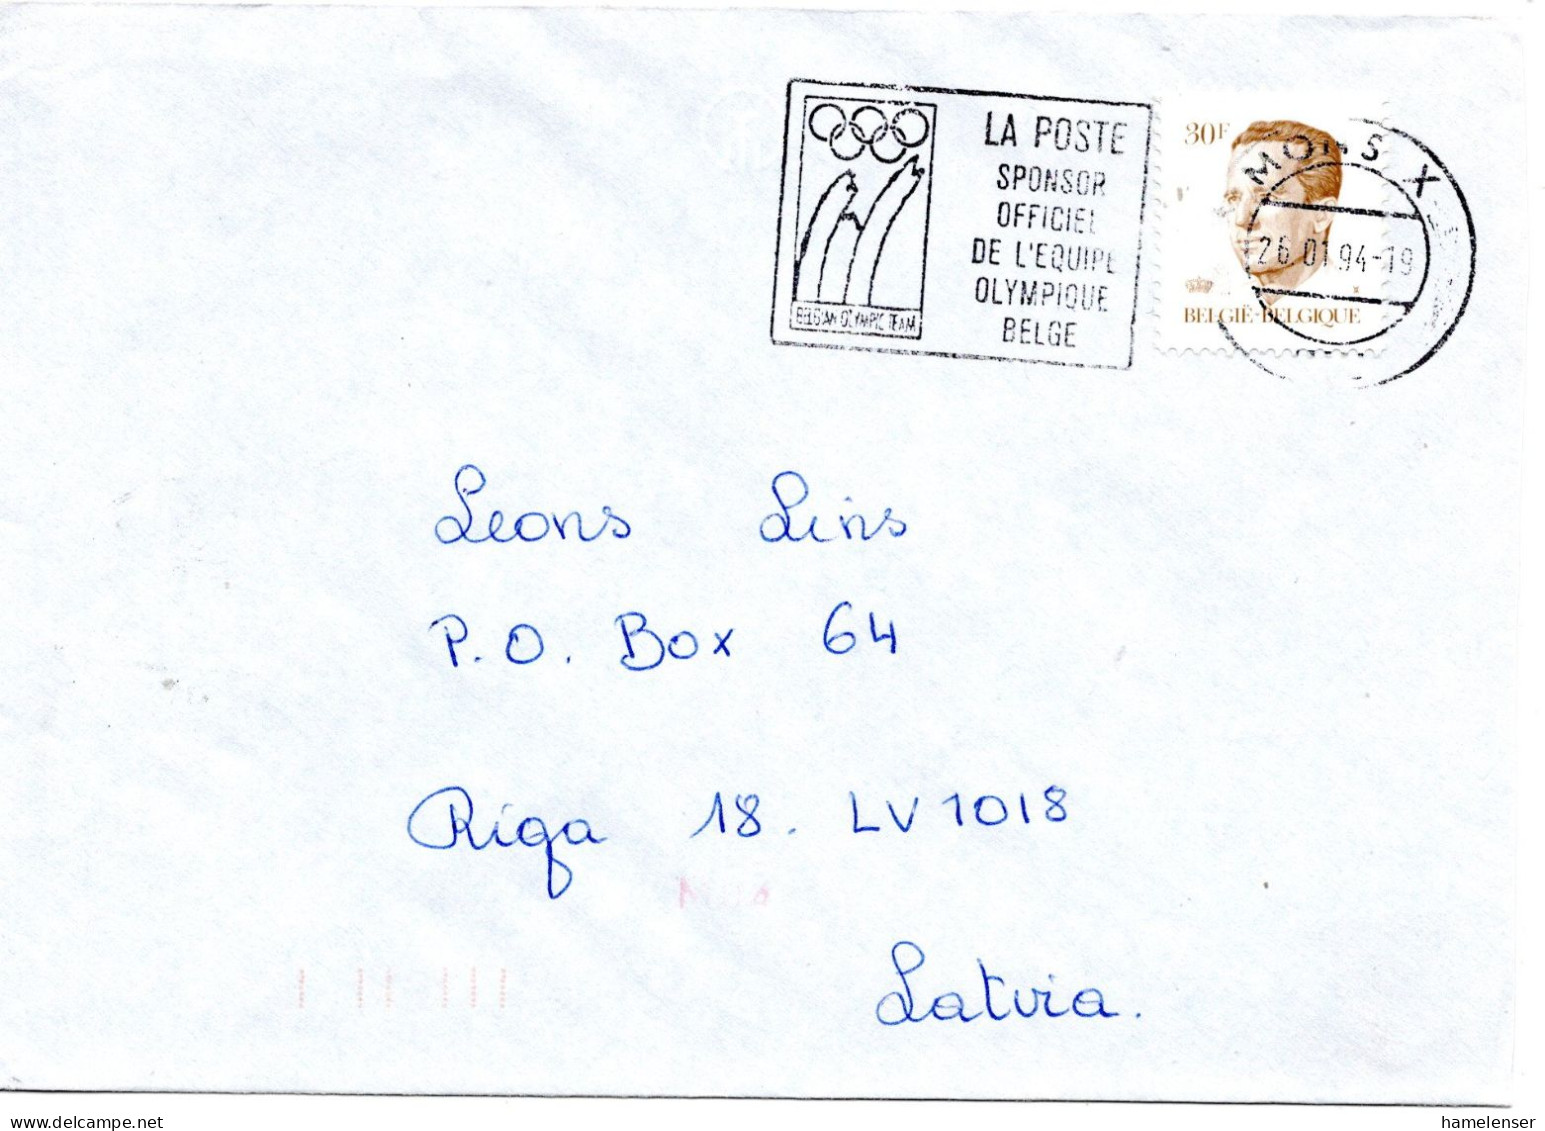 LA POSTE
SPONSOR
OFFICIEL
DE L'EQUIPE
OLYMPIQUE
BELGE
BELGIAN OLYMPIC TEAM
30F
MONS X
26.01.94-19
BELGIË-BELGIQUE
Leons Lins
P.O. Box 64
Riga 18. LV 1018
Latvia.
www.delcampe.net
hamelenser